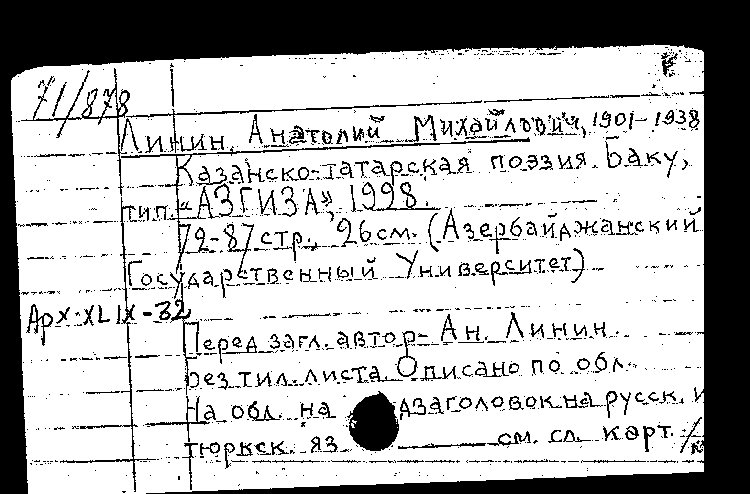 71/878
Линин, Анатолий Михайлович, 1901-1938
Казанско-татарская поэзия. Баку,
тип. «АЗГИЗА», 1998.
72-87 стр., 26 см. (Азербайджанский
Государственный Университет)
Арх-XLIX-32
Перед загл. автор- Ан. Линин.
Без тил. листа. Описано по обл.
На обл. на заголовок на русск. и
тюркск. яз см. сл. карт.